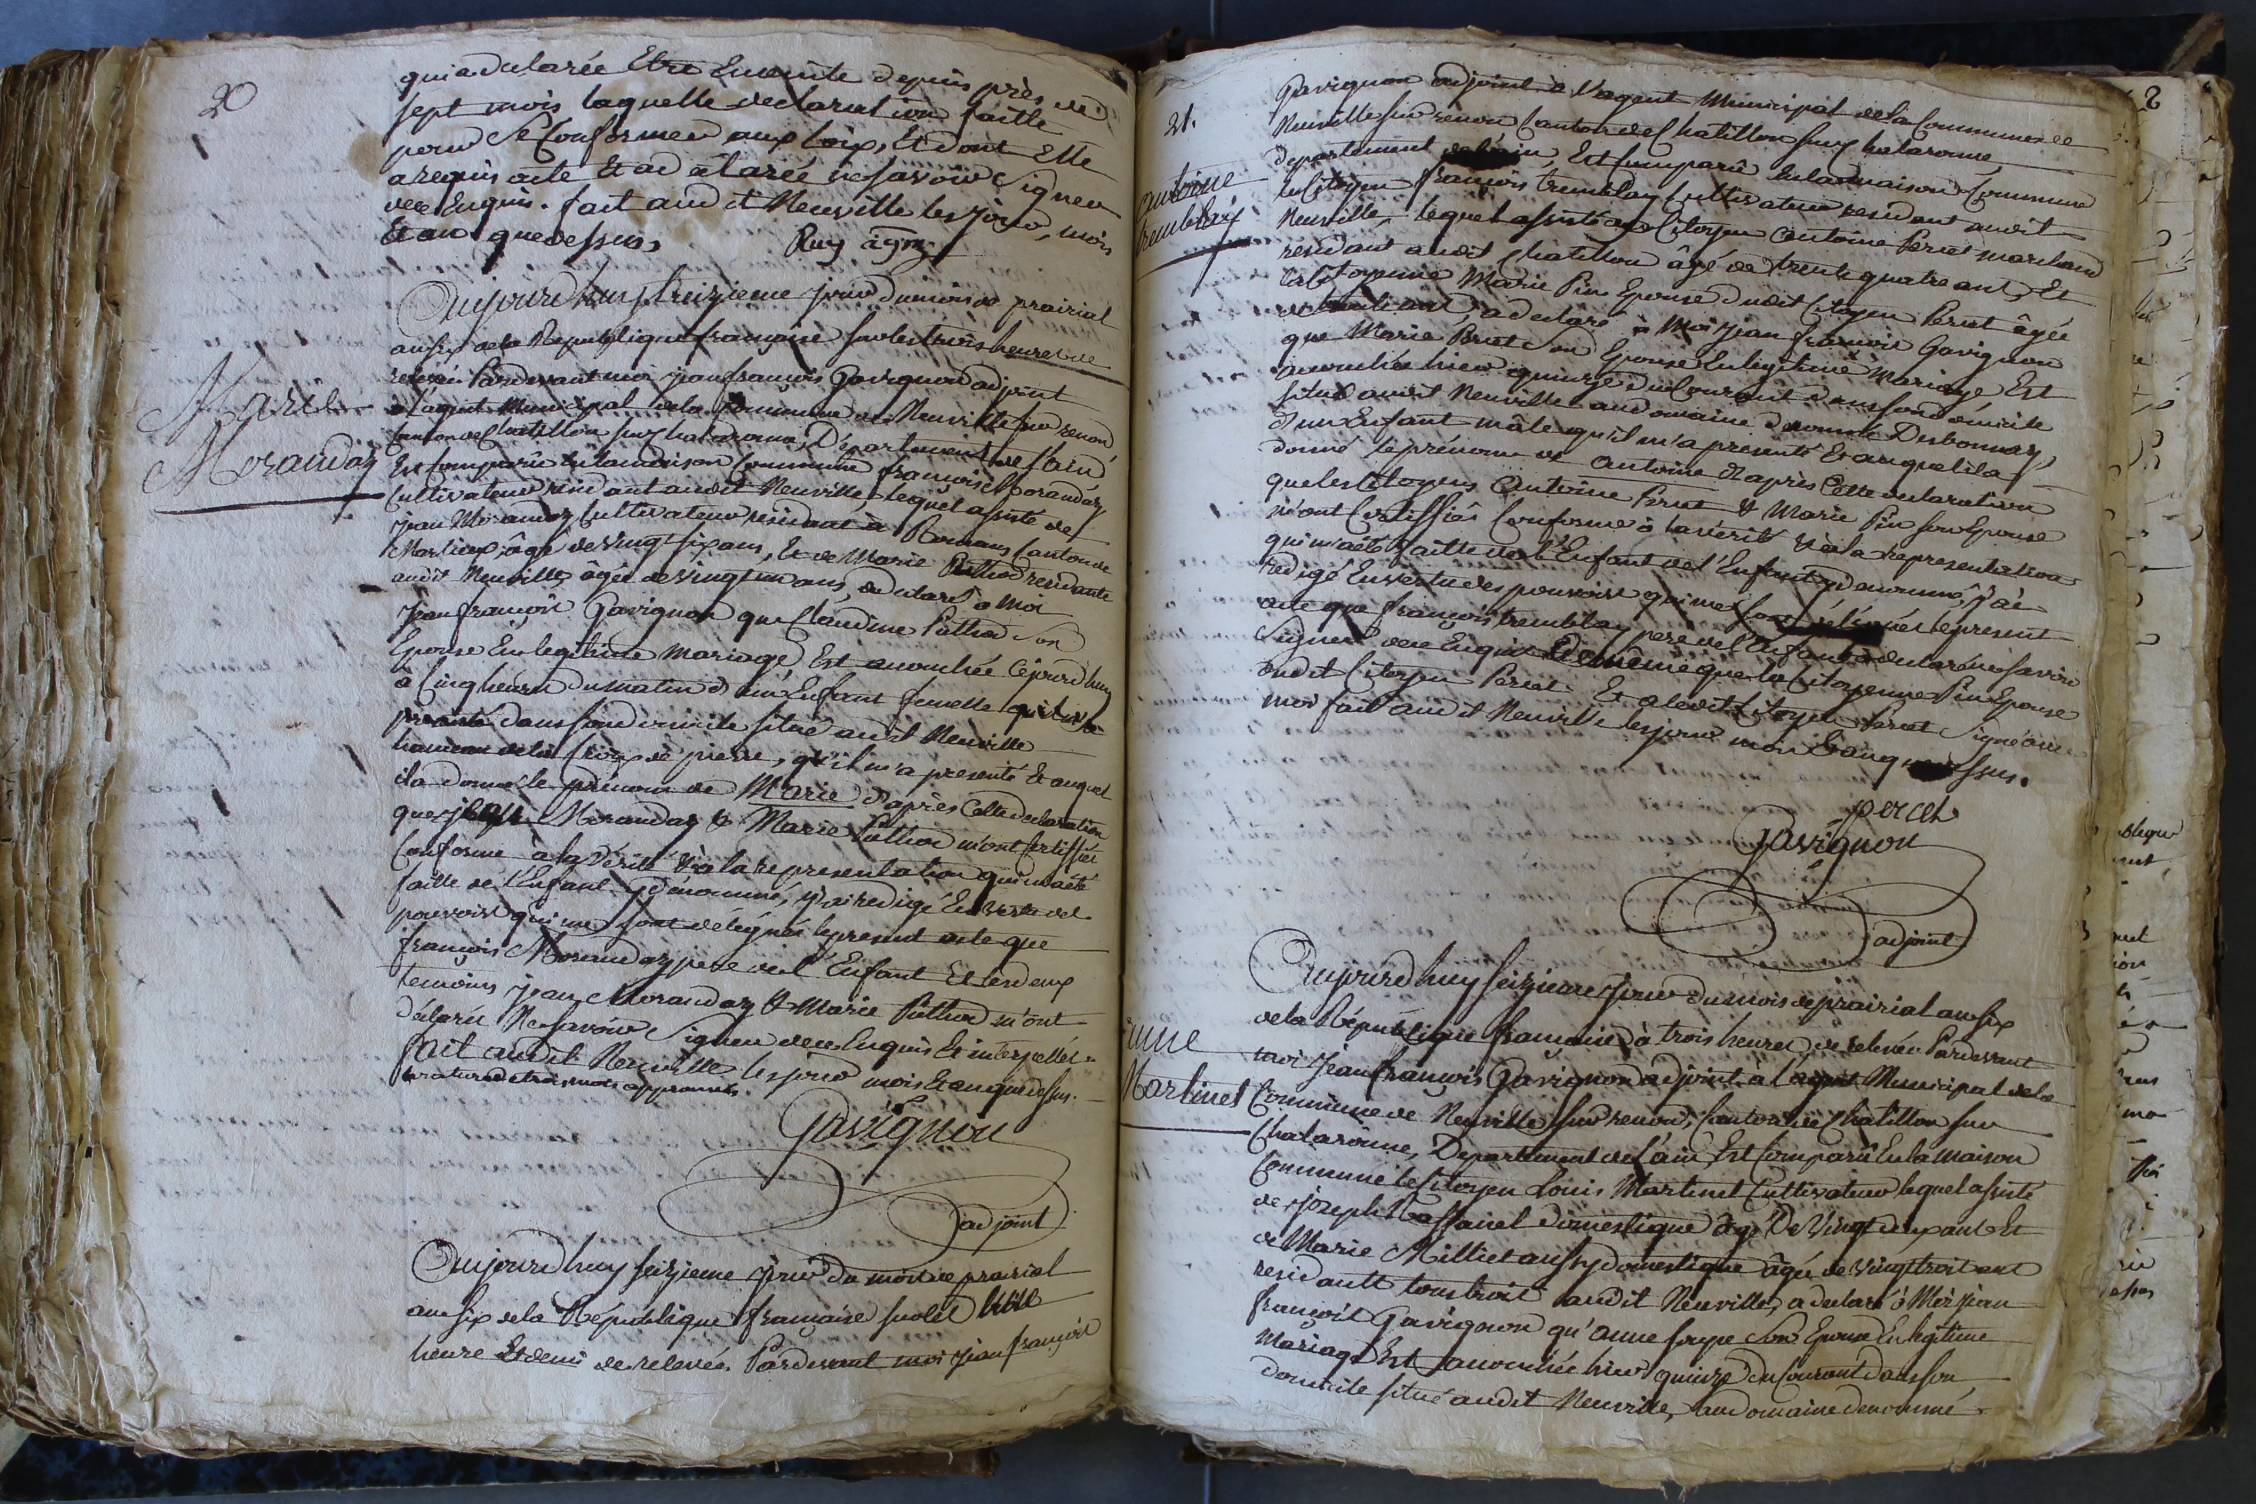 20
qui a declarée Etre Enceinte depuis près de
sept mois laquelle declaration faitte
pour se Conformer aux loix, Et dont Elle
a requis acte Et a déclarée ne savoir signer
de ce Enquis. fait audit Neuville les jour, mois
Et an que dessus. Ruy agent
Marie
Moranday
Aujourd'huy seizieme jour du mois de prairial
an six de la Republique française sur les trois heures de
relevée Pardevant moi jean françois Gavignon adjoint
a l'agent Municipal de la Commune de Neuville sur renon
Canton de Chatillon sur Chalaronne, Département de l'ain
Est Comparû En la maison Commune françois Moranday
Cultivateur residant audit Neuville, lequel assisté de
jean Moranday Cultivateur residant à Romans Canton de
Marlieux, âgé de Vingt six ans, Et de Marie Puthod residante
audit Neuville, âgée de Vingt un ans, a declaré à Moi
jean françois Gavignon que Claudine Puthod son
Epouse En legitime mariage Est accouchée Cejourd'huy
a Cinq heures du matin d'un Enfant femelle
dans son domicile situé audit Neuville
hameau de la Croix de pierre, qu'il m'a presenté Et auquel
il a donné le prénom de Marie d'après Cette declaration
que jean Moranday & Marie Puthod m'ont Certiffiée
Conforme à la Vérité & à la representation qui m'a été
faitte de l'Enfant denommé, j'ai redigé En Vertu des
pouvoirs qui me sont delegués le present acte que
françois Moranday pere de l'Enfant Et les deux
temoins jean Moranday & Marie Puthod m'ont
déclaré Ne savoir signer de ce Enquis Et interpellés.
fait audit Neuville les jour mois Et an que dessus.
rature de trois mots approuvés
Gavignon
adjoint
Aujourd'huy seizieme jour du mois de prairial
an six de la République française sur les trois
heure Et demi de relevée. Pardevant moi jean françois
21.
antoine
tremblay
Gavignon adjoint à l'agent Municipal de la Commune de
Neuville sur renon Canton de Chatillon sur Chalaronne
departement de l'ain, Est Comparû En la maison Commune
le Citoyen françois tremblay Cultivateur residant audit
Neuville, lequel assisté du Citoyen antoine Perret marchand
residant audit Chatillon âgé de trente quatre ans, Et
la Citoyenne Marie Pin Epouse dudit Citoyen Perret âgée
de trente ans, a declaré à Moi jean françois Gavignon
que Marie Perret son Epouse En legitime mariage Est
accouchée hier quinze du Courant dans son domicile
situé audit Neuville au domaine denommé Desbonnay,
d'un Enfant mâle qu'il m'a presenté Et auquel il a
donné le prénom de antoine d'après Cette declaration
que les Citoyens antoine Perret & Marie Pin son Epouse
m'ont Certiffiés Conforme à la vérité & à la representation
qui m'a été faitte de l'Enfant de l'Enfant denommé, j'ai
redigé En vertu des pouvoirs qui me sont délégués le present
acte que françois tremblay pere de l'Enfant a declaré ne savoir
signer de ce Enquis De même que la Citoyenne Pin Epouse
audit Citoyen Perret. Et a ledit Citoyen Perret signé avec
moi fait audit Neuville les jour mois Et an que dessus.
perret
Gavignon
adjoint
anne
Martinet
Aujourd'huy seizieme jour du mois de prairial an six
de la République française à trois heures de relevée Pardevant
moi jean françois Gavignon adjoint à l'agent Municipal de la
Commune de Neuville sur renon, Canton de Chatillon sur
Chalaronne, Departement de l'ain, Est Comparû En la maison
Commune le Citoyen Louis Martinet Cultivateur lequel assisté
de joseph domestique âgé De Vingt deux ans Et
de Marie Milliet aussy domestique âgée de Vingt trois ans
residants tous trois audit Neuville, a declaré à Moi jean
françois Gavignon qu'anne son Epouse En legitime
Mariage Est accouchée hier quinze du Courant dans son
domicile situé audit Neuville, au domaine denommé